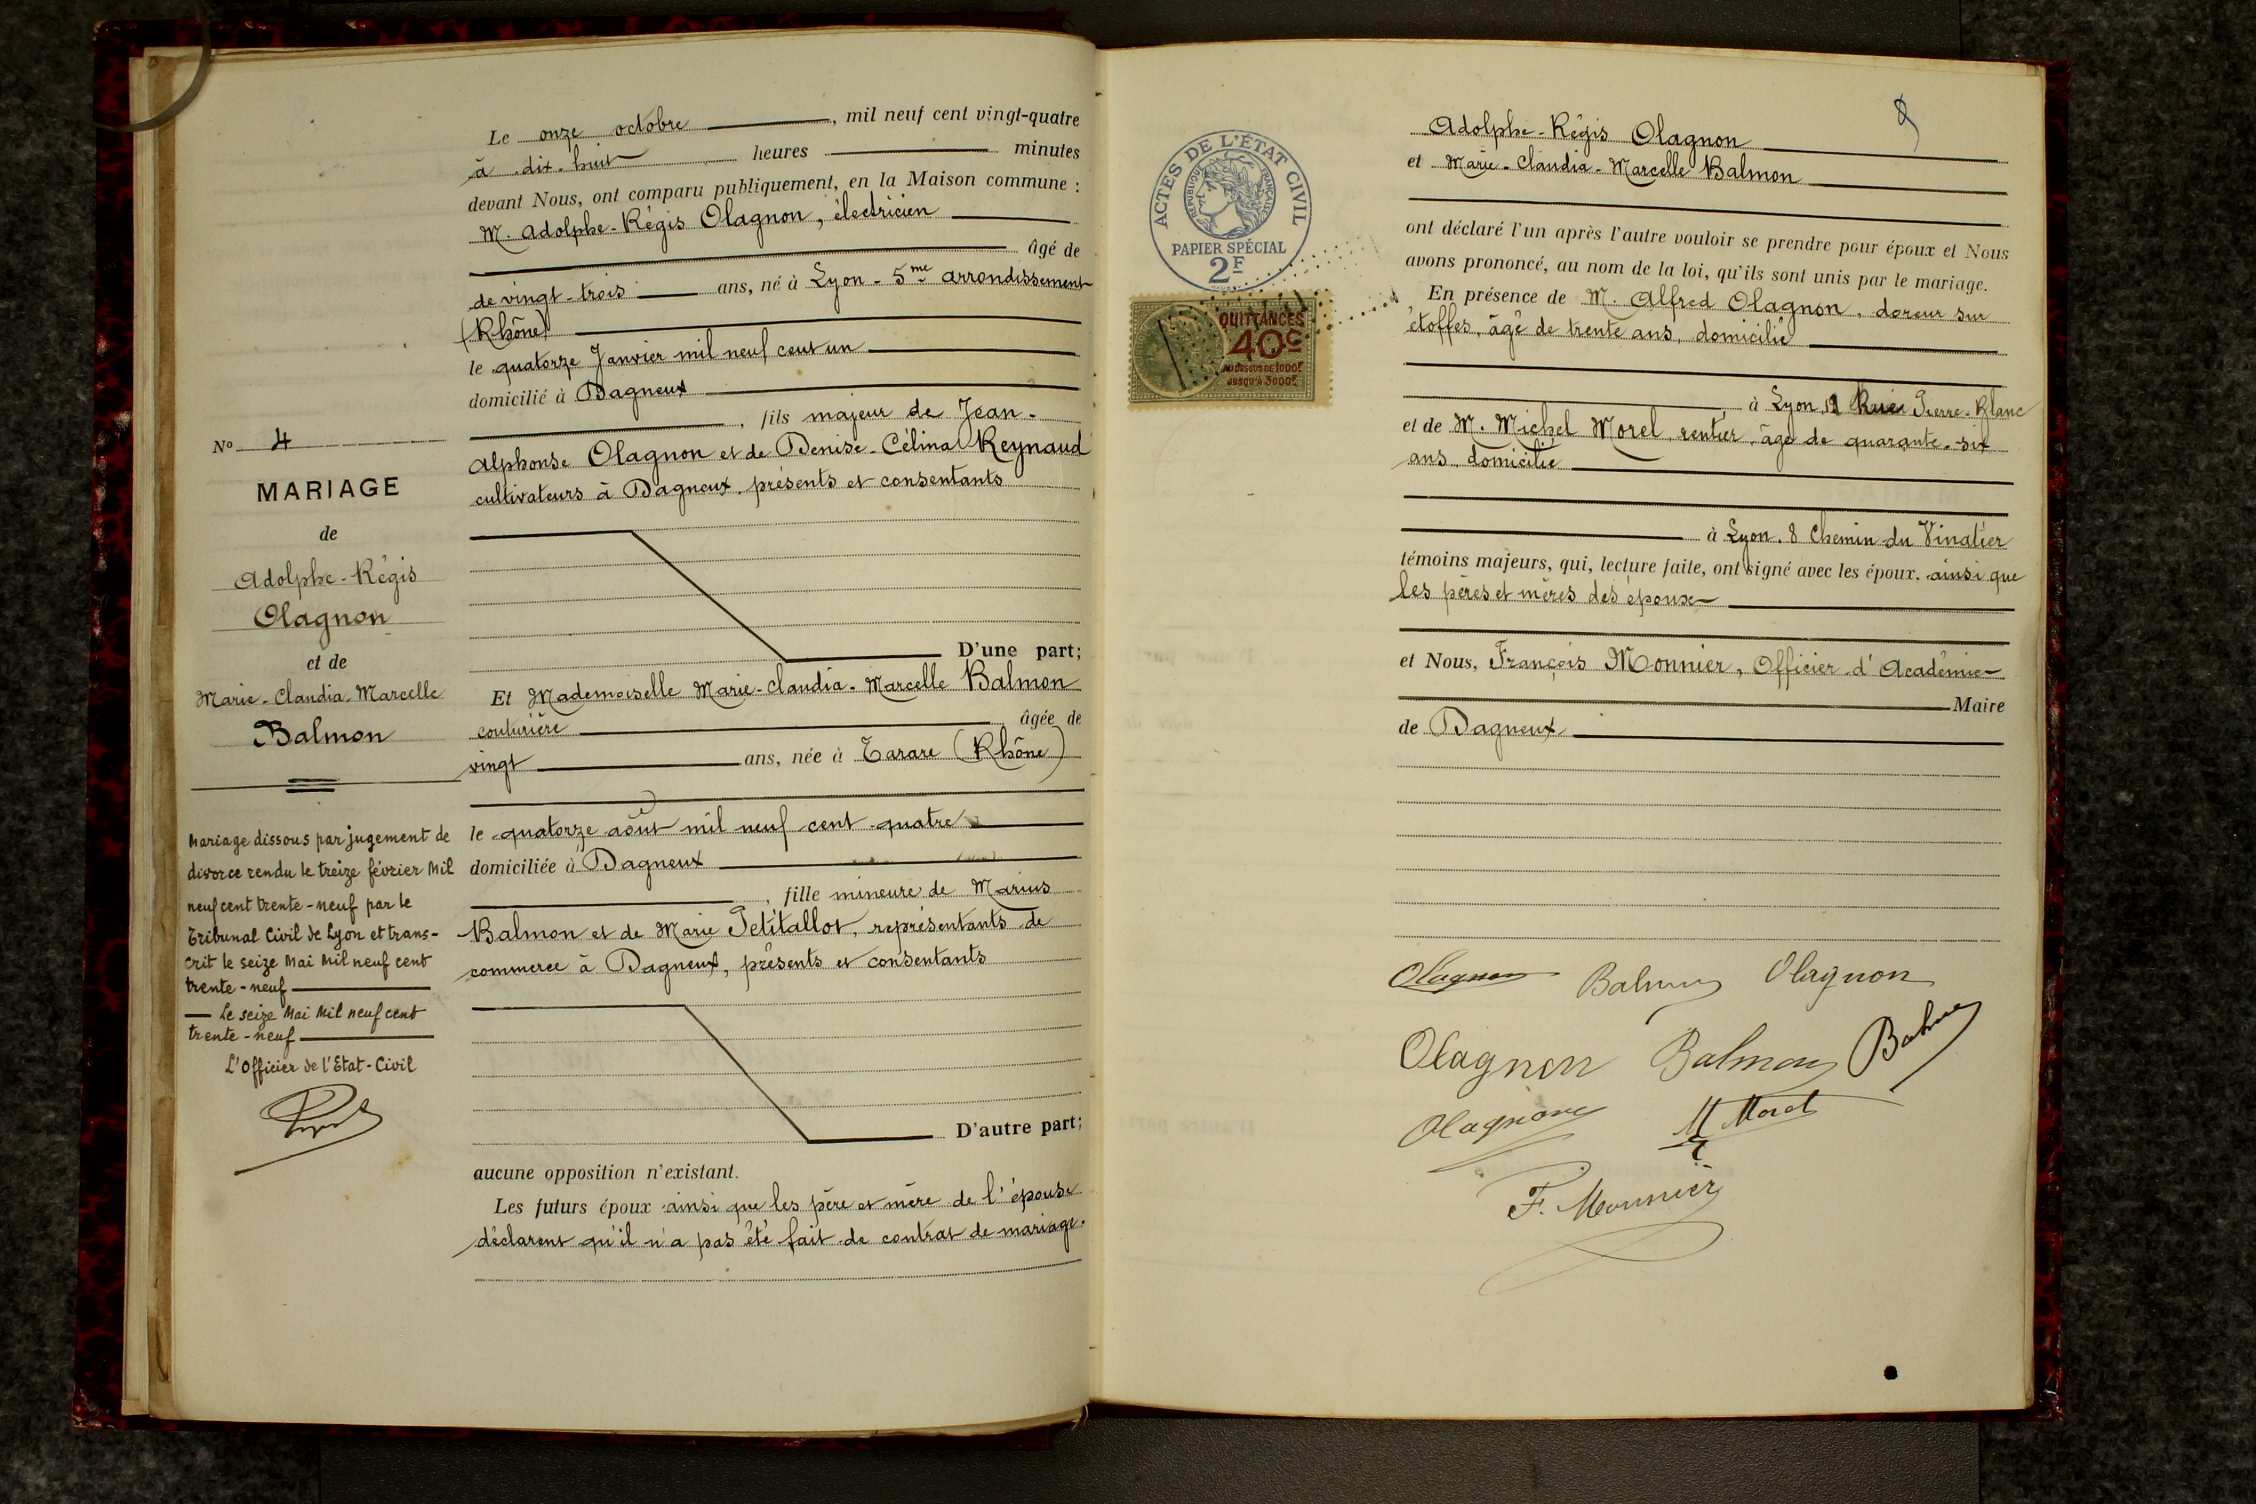 Le onze octobre, mil neuf cent vingt-quatre
à dix-huit heures minutes
devant Nous, ont comparu publiquement, en la Maison commune :
M. Adolphe-Régis Olagnon, électricien
âgé de
de vingt-trois ans, né à Lyon - 5me arrondissement
(Rhône)
le quatorze Janvier mil neuf cent un
domicilié à Dagneux
, fils majeur de Jean-
Alphonse Olagnon et de Denise-Célina Reynaud
cultivateurs à Dagneux, présents et consentants
D'une part;
Et Mademoiselle Marie-Claudia-Marcelle Balmon
couturière âgée de
vingt ans, née à Tarare (Rhône)
le quatorze août mil neuf cent quatre
domiciliée à Dagneux
, fille mineure de Marius
Balmon et de Marie Petitallot, représentants de
commerce à Dagneux, présents et consentants
D'autre part;
aucune opposition n'existant.
Les futurs époux ainsi que les père et mère de l'épouse
déclarent qu'il n'a pas été fait de contrat de mariage.
No 4
MARIAGE
de
Adolphe-Régis
Olagnon
et de
Marie-Claudia-Marcelle
Balmon
Mariage dissous par jugement de
divorce rendu le treize février Mil
neuf cent trente-neuf par le
Tribunal Civil de Lyon et trans-
crit le seize Mai Mil neuf cent
trente-neuf
Le seize Mai Mil neuf cent
trente-neuf
L'Officier de l'Etat-Civil
ACTES DE L'ÉTAT CIVIL
RÉPUBLIQUE FRANÇAISE
PAPIER SPÉCIAL
2F
QUITTANCES
40c
AU DESSUS DE 1000F
JUSQU'À 3000F
Adolphe-Régis Olagnon
et Marie-Claudia-Marcelle Balmon
ont déclaré l'un après l'autre vouloir se prendre pour époux et Nous
avons prononcé, au nom de la loi, qu'ils sont unis par le mariage.
En présence de M. Alfred Olagnon, doreur sur
étoffes, âgé de trente ans, domicilié
à Lyon, Rue Pierre-Blanc
et de M. Michel Morel, rentier, âgé de quarante-six
ans, domicilié
à Lyon, 8 Chemin du Vinatier
témoins majeurs, qui, lecture faite, ont signé avec les époux. ainsi que
les pères et mères des époux
et Nous, François Monnier, Officier d'Académie
Maire
de Dagneux
Olagnon Balmon Olagnon
Olagnon Balmon
Olagnon M Morel
F. Monnier